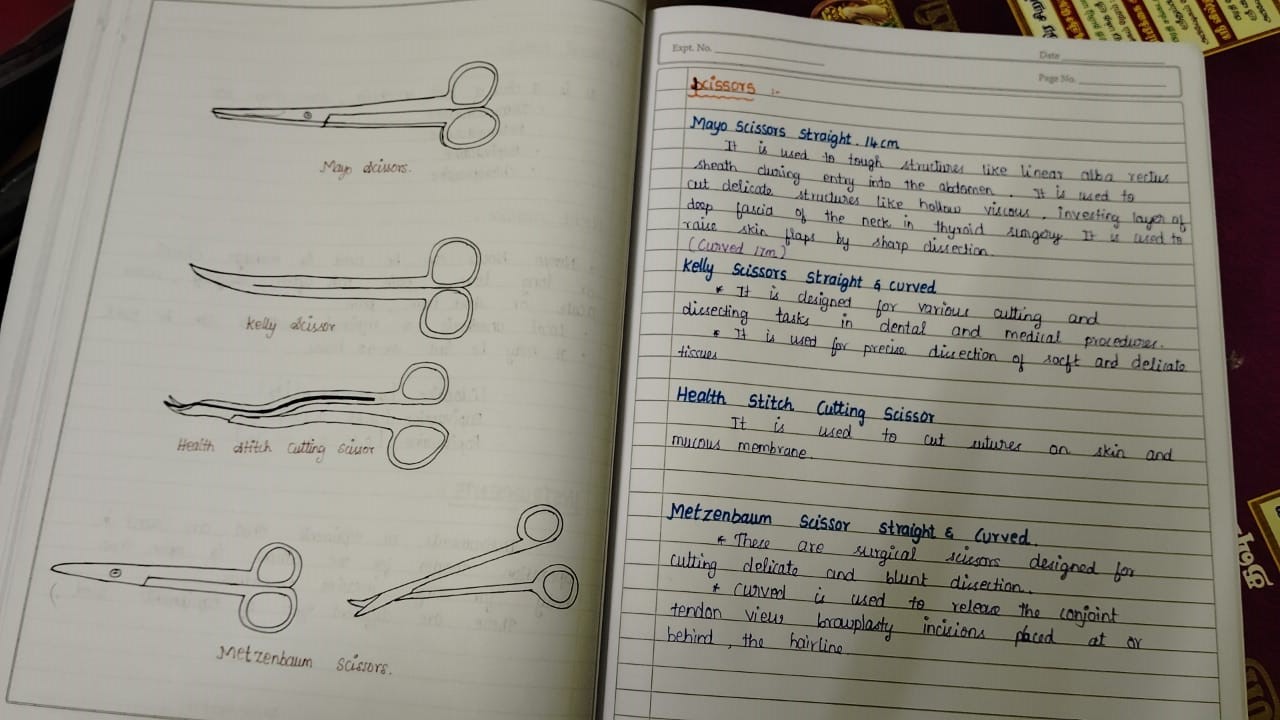 Mayo Scissors.
Kelly Scissor
Health Stitch Cutting Scissor
Metzenbaum Scissors.
Expt. No.
Date
Page No.
Scissors :-
Mayo Scissors Straight . 14 cm
It is used to tough structures like linear alba rectus
sheath during entry into the abdomen . It is used to
cut delicate structures like hollow viscous . investing layer of
deep fascia of the neck in thyroid surgery It is used to
raise skin flaps by sharp dissection.
(Curved 17m)
Kelly Scissors Straight & curved
* It is designed for various cutting and
dissecting tasks in dental and medical procedures.
* It is used for precise dissection of socft and delicate
tissues
Health Stitch Cutting Scissor
It is used to cut sutures on skin and
mucous membrane.
Metzenbaum Scissor Straight & Curved.
* These are surgical scissors designed for
cutting delicate and blunt dissection.
* Curved is used to release the conjoint
tendon view browplasty incisions placed at or
behind , the hairline